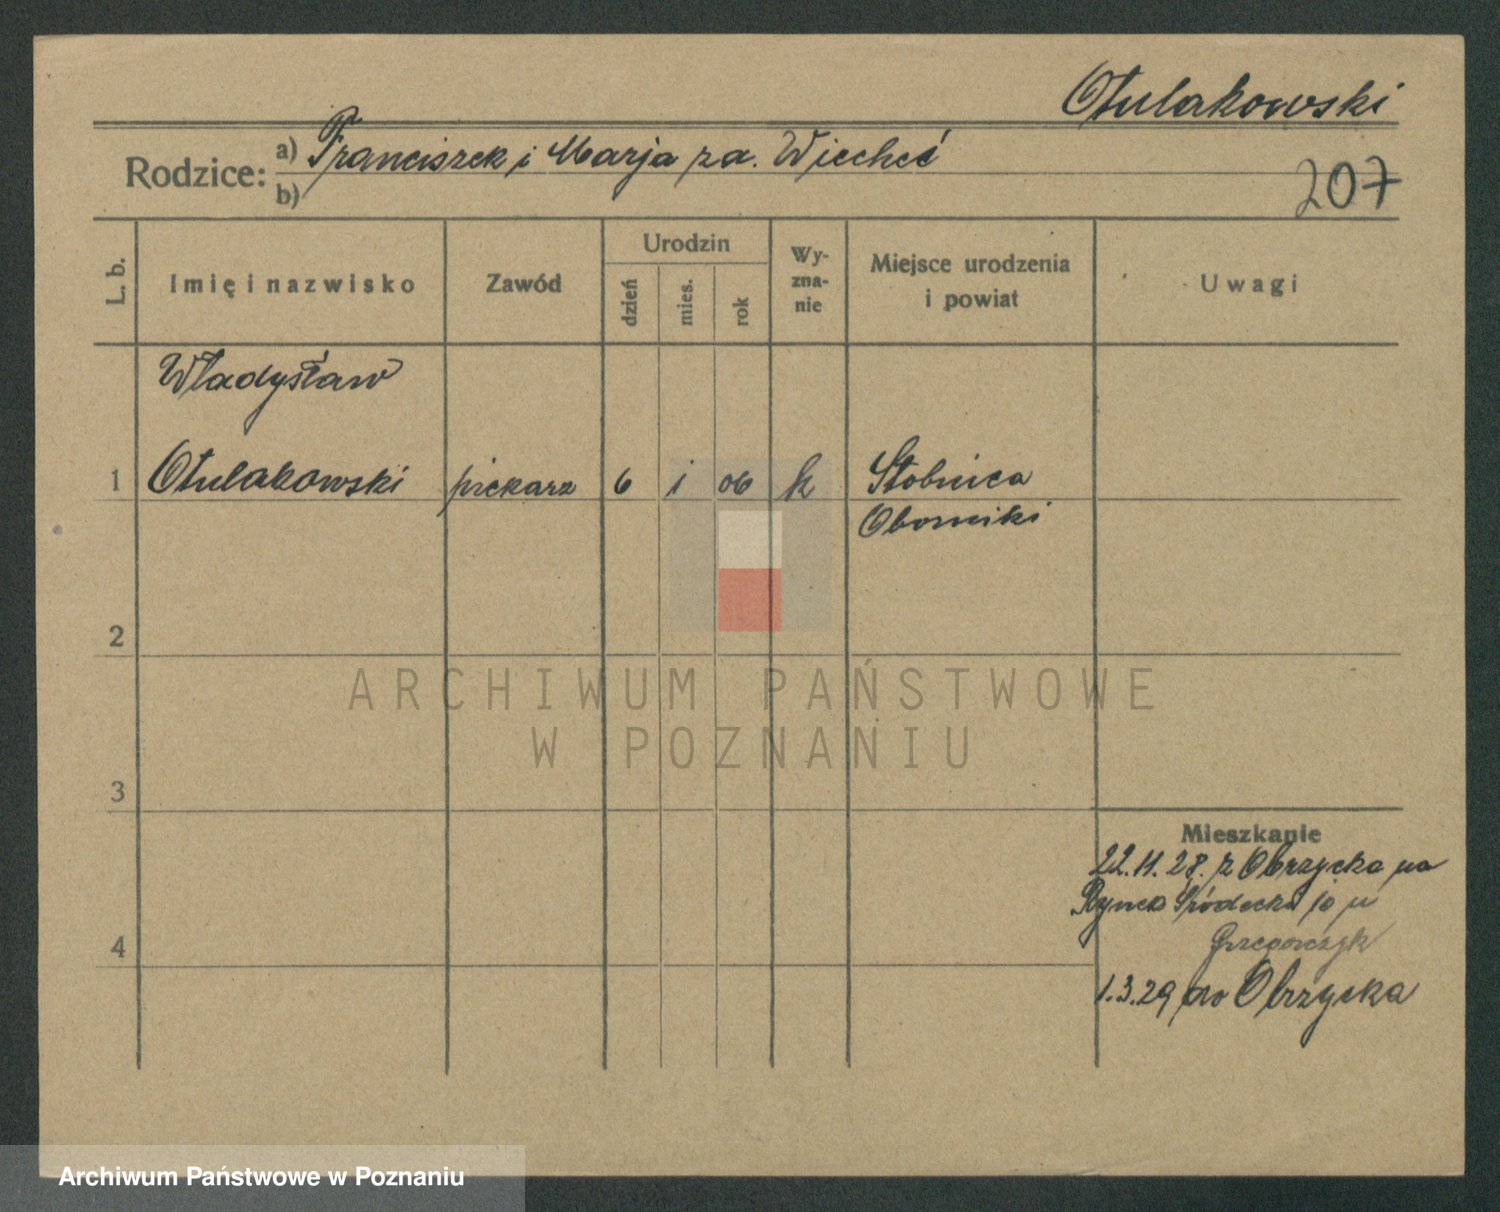 Otulakowski
Rodzice: a) Franciszek i Marja za. Wiecheć
b)
207
L. b.
Imię i nazwisko
Zawód
Urodzin
dzień
mies.
rok
Wy-
zna-
nie
Miejsce urodzenia
i powiat
Uwagi
Władysław
1 Otulakowski piekarz 6 1 06 k Stobnica
Oborniki
2
ARCHIWUM PAŃSTWOWE
W POZNANIU
3
Mieszkanie
22.11.28. z Obrzycka na
Rynek Śródecki 10 u
Grzegorczyk
4
1.3.29 do Obrzycka
Archiwum Państwowe w Poznaniu